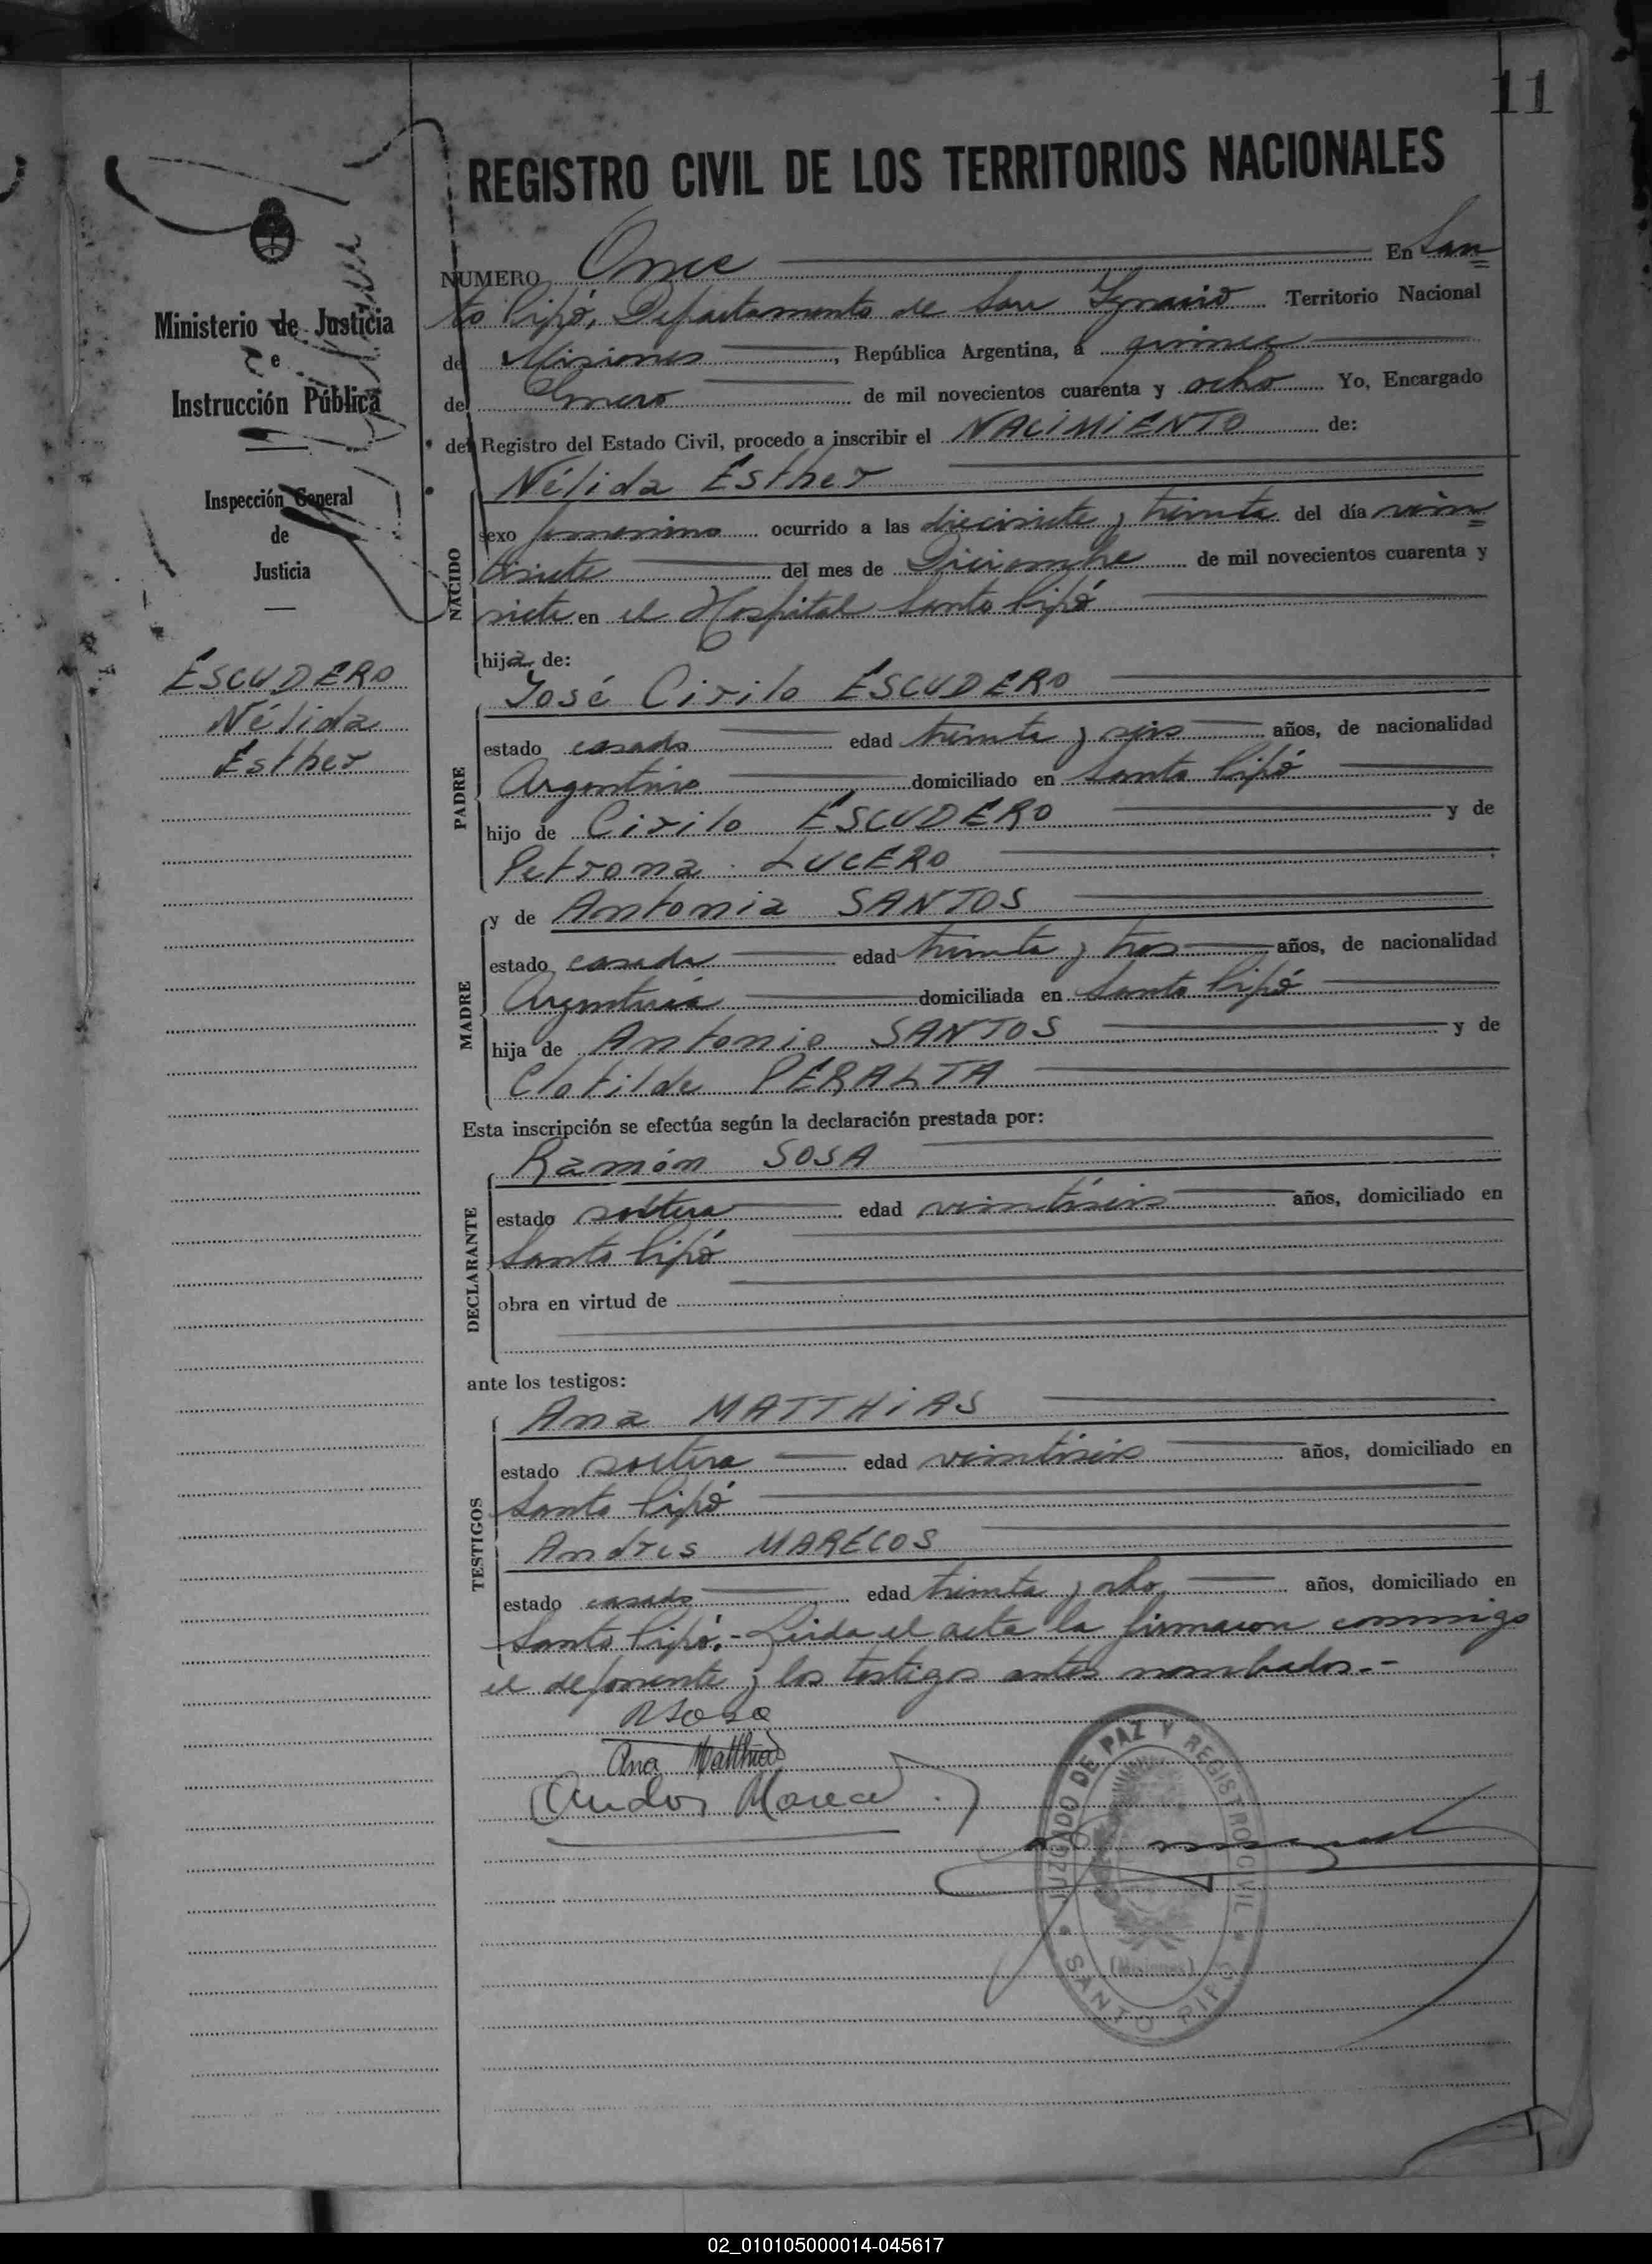 11
REGISTRO CIVIL DE LOS TERRITORIOS NACIONALES
Ministerio de Justicia
e
Instrucción Pública
Inspección General
de
Justicia
ESCUDERO
Nélida
Esther
NUMERO Once En San
to Pipó, Departamento de San Ignacio Territorio Nacional
de Misiones, República Argentina, a quince
de Enero de mil novecientos cuarenta y ocho Yo, Encargado
del Registro del Estado Civil, procedo a inscribir el NACIMIENTO de:
NACIDO
Nélida Esther
sexo femenino ocurrido a las diecisiete y treinta del día vein
tisiete del mes de Diciembre de mil novecientos cuarenta y
siete en el Hospital Santo Pipó
hija de:
PADRE
José Cirilo ESCUDERO
estado casado edad treinta y seis años, de nacionalidad
Argentino domiciliado en Santo Pipó
hijo de Cirilo ESCUDERO y de
Petrona LUCERO
MADRE
y de Antonia SANTOS
estado casada edad treinta y tres años, de nacionalidad
Argentina domiciliada en Santo Pipó
hija de Antonio SANTOS y de
Clotilde PERALTA
Esta inscripción se efectúa según la declaración prestada por:
DECLARANTE
Ramón SOSA
estado soltero edad veintiséis años, domiciliado en
Santo Pipó
obra en virtud de
ante los testigos:
TESTIGOS
Ana MATTHIAS
estado soltera edad veintiséis años, domiciliado en
Santo Pipó
Andres MARECOS
estado casado edad treinta y ocho años, domiciliado en
Santo Pipó.- Leída el acta la firmaron conmigo
el deponente y los testigos antes nombrados.-
R Sosa
Ana Matthias
Andres Mareco
JUZGADO DE PAZ Y REGISTRO CIVIL
(Misiones)
SANTO PIPÓ
02_010105000014-045617